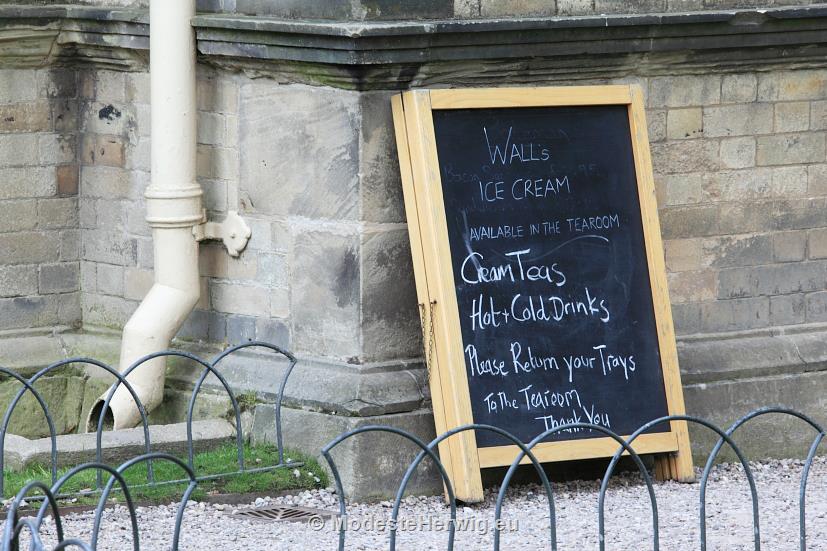 WALL's
ICE CREAM
AVAILABLE IN THE TEAROOM
Cream Teas
Hot + Cold Drinks
Please Return your Trays
To the Tearoom
Thank You
© ModesteHerwig.eu